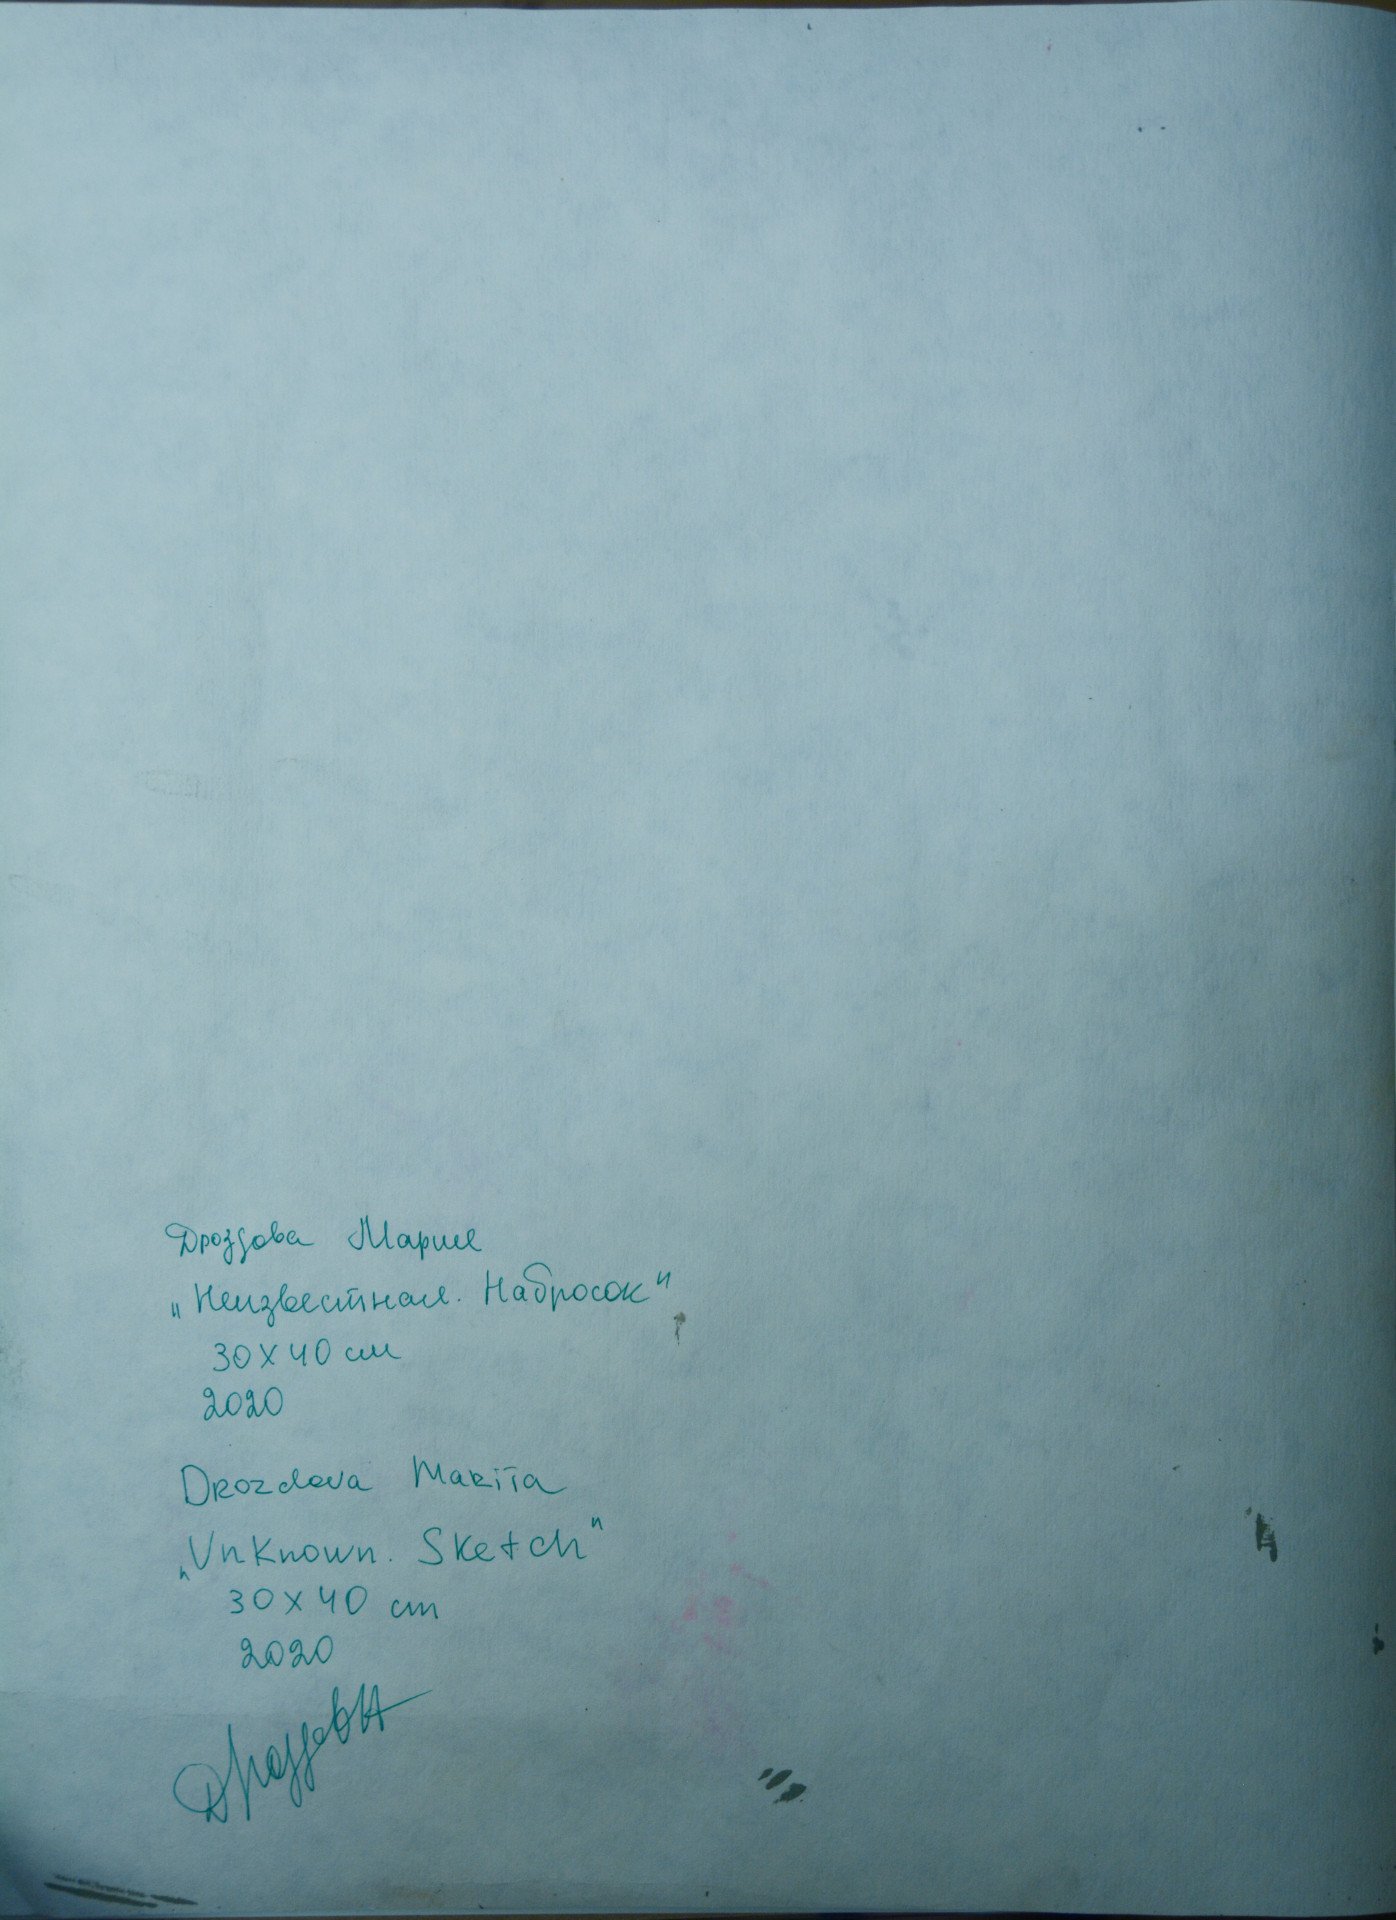 Дроздова Мария
„Неизвестная. Набросок"
30х40 см
2020
Drozdova Mariia
„Unknown. Sketch"
30x40 cm
2020
Дроздова